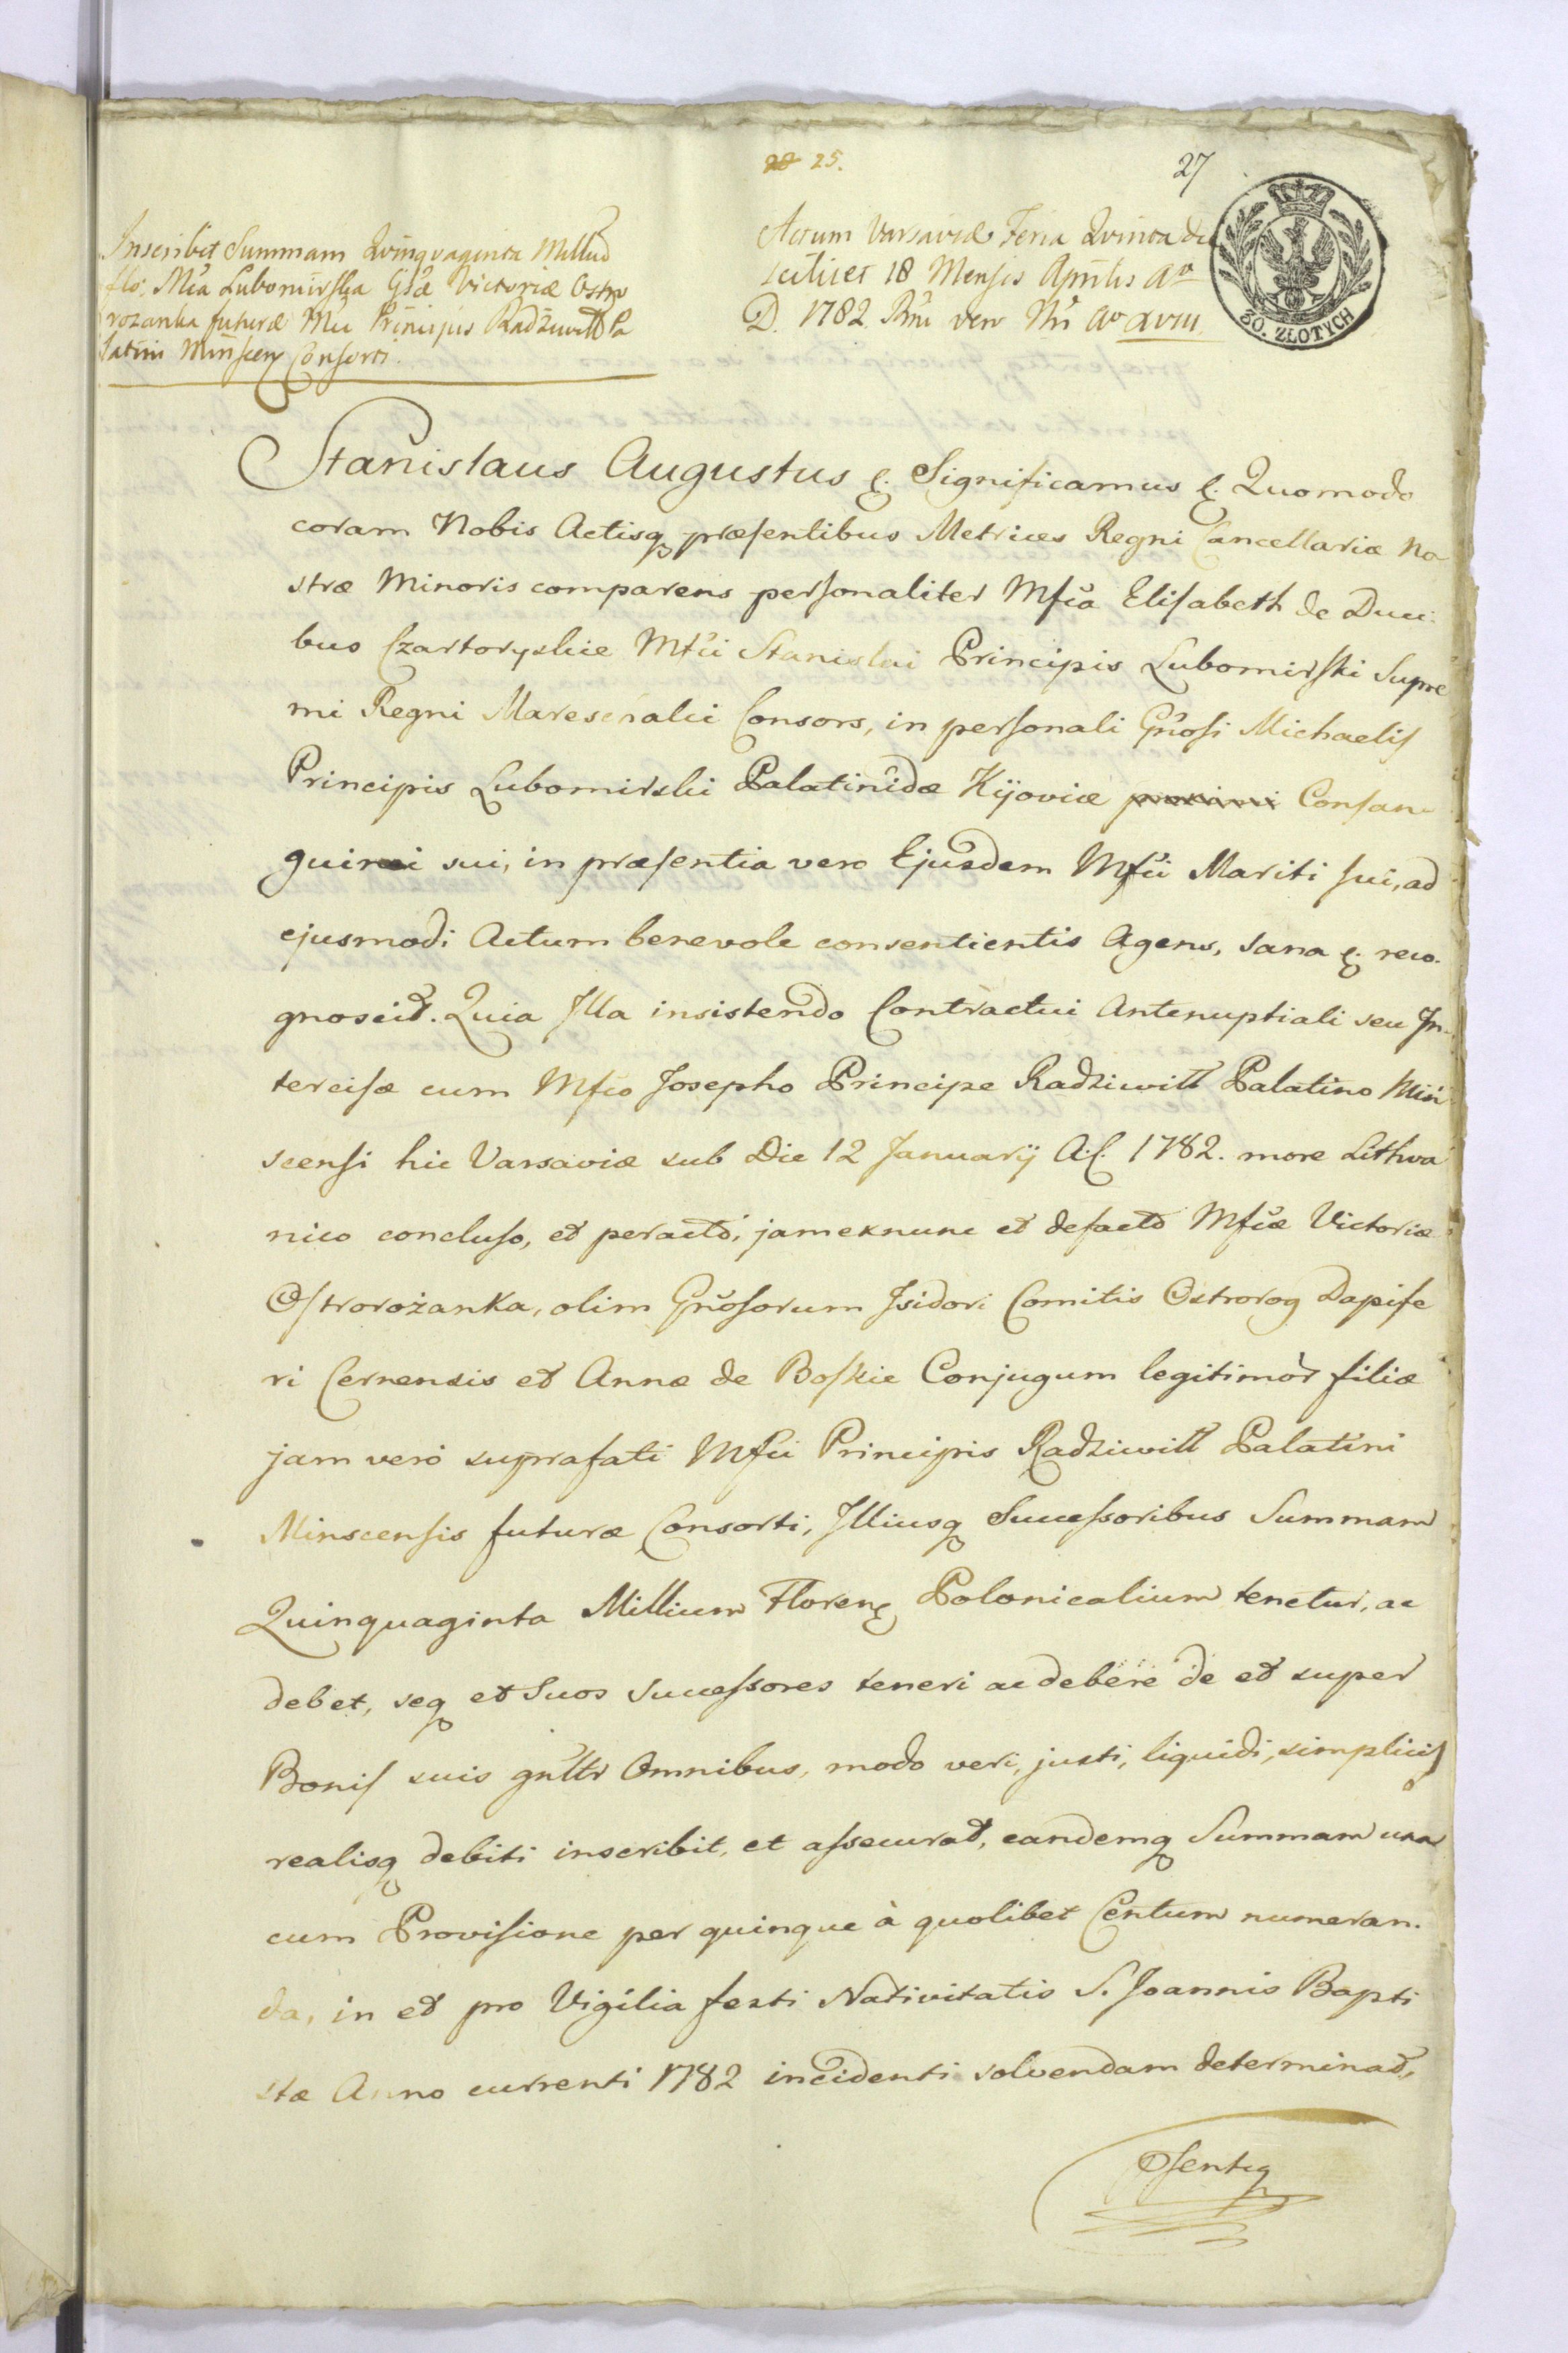 ~~28~~ 25.
27
Inscribit Summam Quinquaginta Millium
flo: Mca Lubomirska Gsæ Victoriæ Ostro
rozanka futuræ Mci Principis Radziwiłł Pa
latini Minscen Consorti.
Actum Varsaviæ Feria Quinta die
scilicet 18 Mensis Aprilis Ao
D. 1782 Rni vero Nri Ao XVIII
30. ZŁOTYCH
Stanislaus Augustus &. Significamus &. Quomodo
coram Nobis Actisq præsentibus Metrices Regni Cancellariæ No
stræ Minoris comparens personaliter Mfca Elisabeth de Duci:
bus Czartoryskie Mfci Stanislai Principis Lubomirski Supre
mi Regni Mareschalci Consors, in personali Gnosi Michaelis
Principis Lubomirski Palatinidæ Kijoviæ ~~proximi~~ Consan-
guinei sui, in præsentia vero Ejusdem Mfci Mariti sui, ad
ejusmodi Actum benevole consentientis Agens, sana &. reco-
gnoscit. Quia Illa insistendo Contractui Antenuptiali seu In-
tercisæ cum Mfco Josepho Principe Radziwiłł Palatino Min
scensi hic Varsaviæ sub Die 12 Januarij A.C. 1782. more Lithva
nico concluso, et peracto, jamexnunc et defacto Mfcæ Victoriæ
Ostrorożanka, olim Gnosorum Isidori Comitis Ostrorog Dapife
ri Cernensis et Annæ de Boskie Conjugum legitimor filiæ
jam vero suprafati Mfci Principis Radziwiłł Palatini
Minscensis futuræ Consorti, Illiusq Successoribus Summam
Quinquaginta Millium Floren Polonicalium tenetur, ac
debet, seq et Suos Successores teneri ac debere de et super
Bonis suis gnltr Omnibus, modo veri, justi, liquidi, simplicis
realisq debiti inscribit, et assecurat, eandemq Summam una
cum Provisione per quinque à quolibet Centum numeran-
da, in et pro Vigilia festi Nativitatis S. Joannis Bapti
stæ Anno currenti 1782 incidenti solvendam determinat,